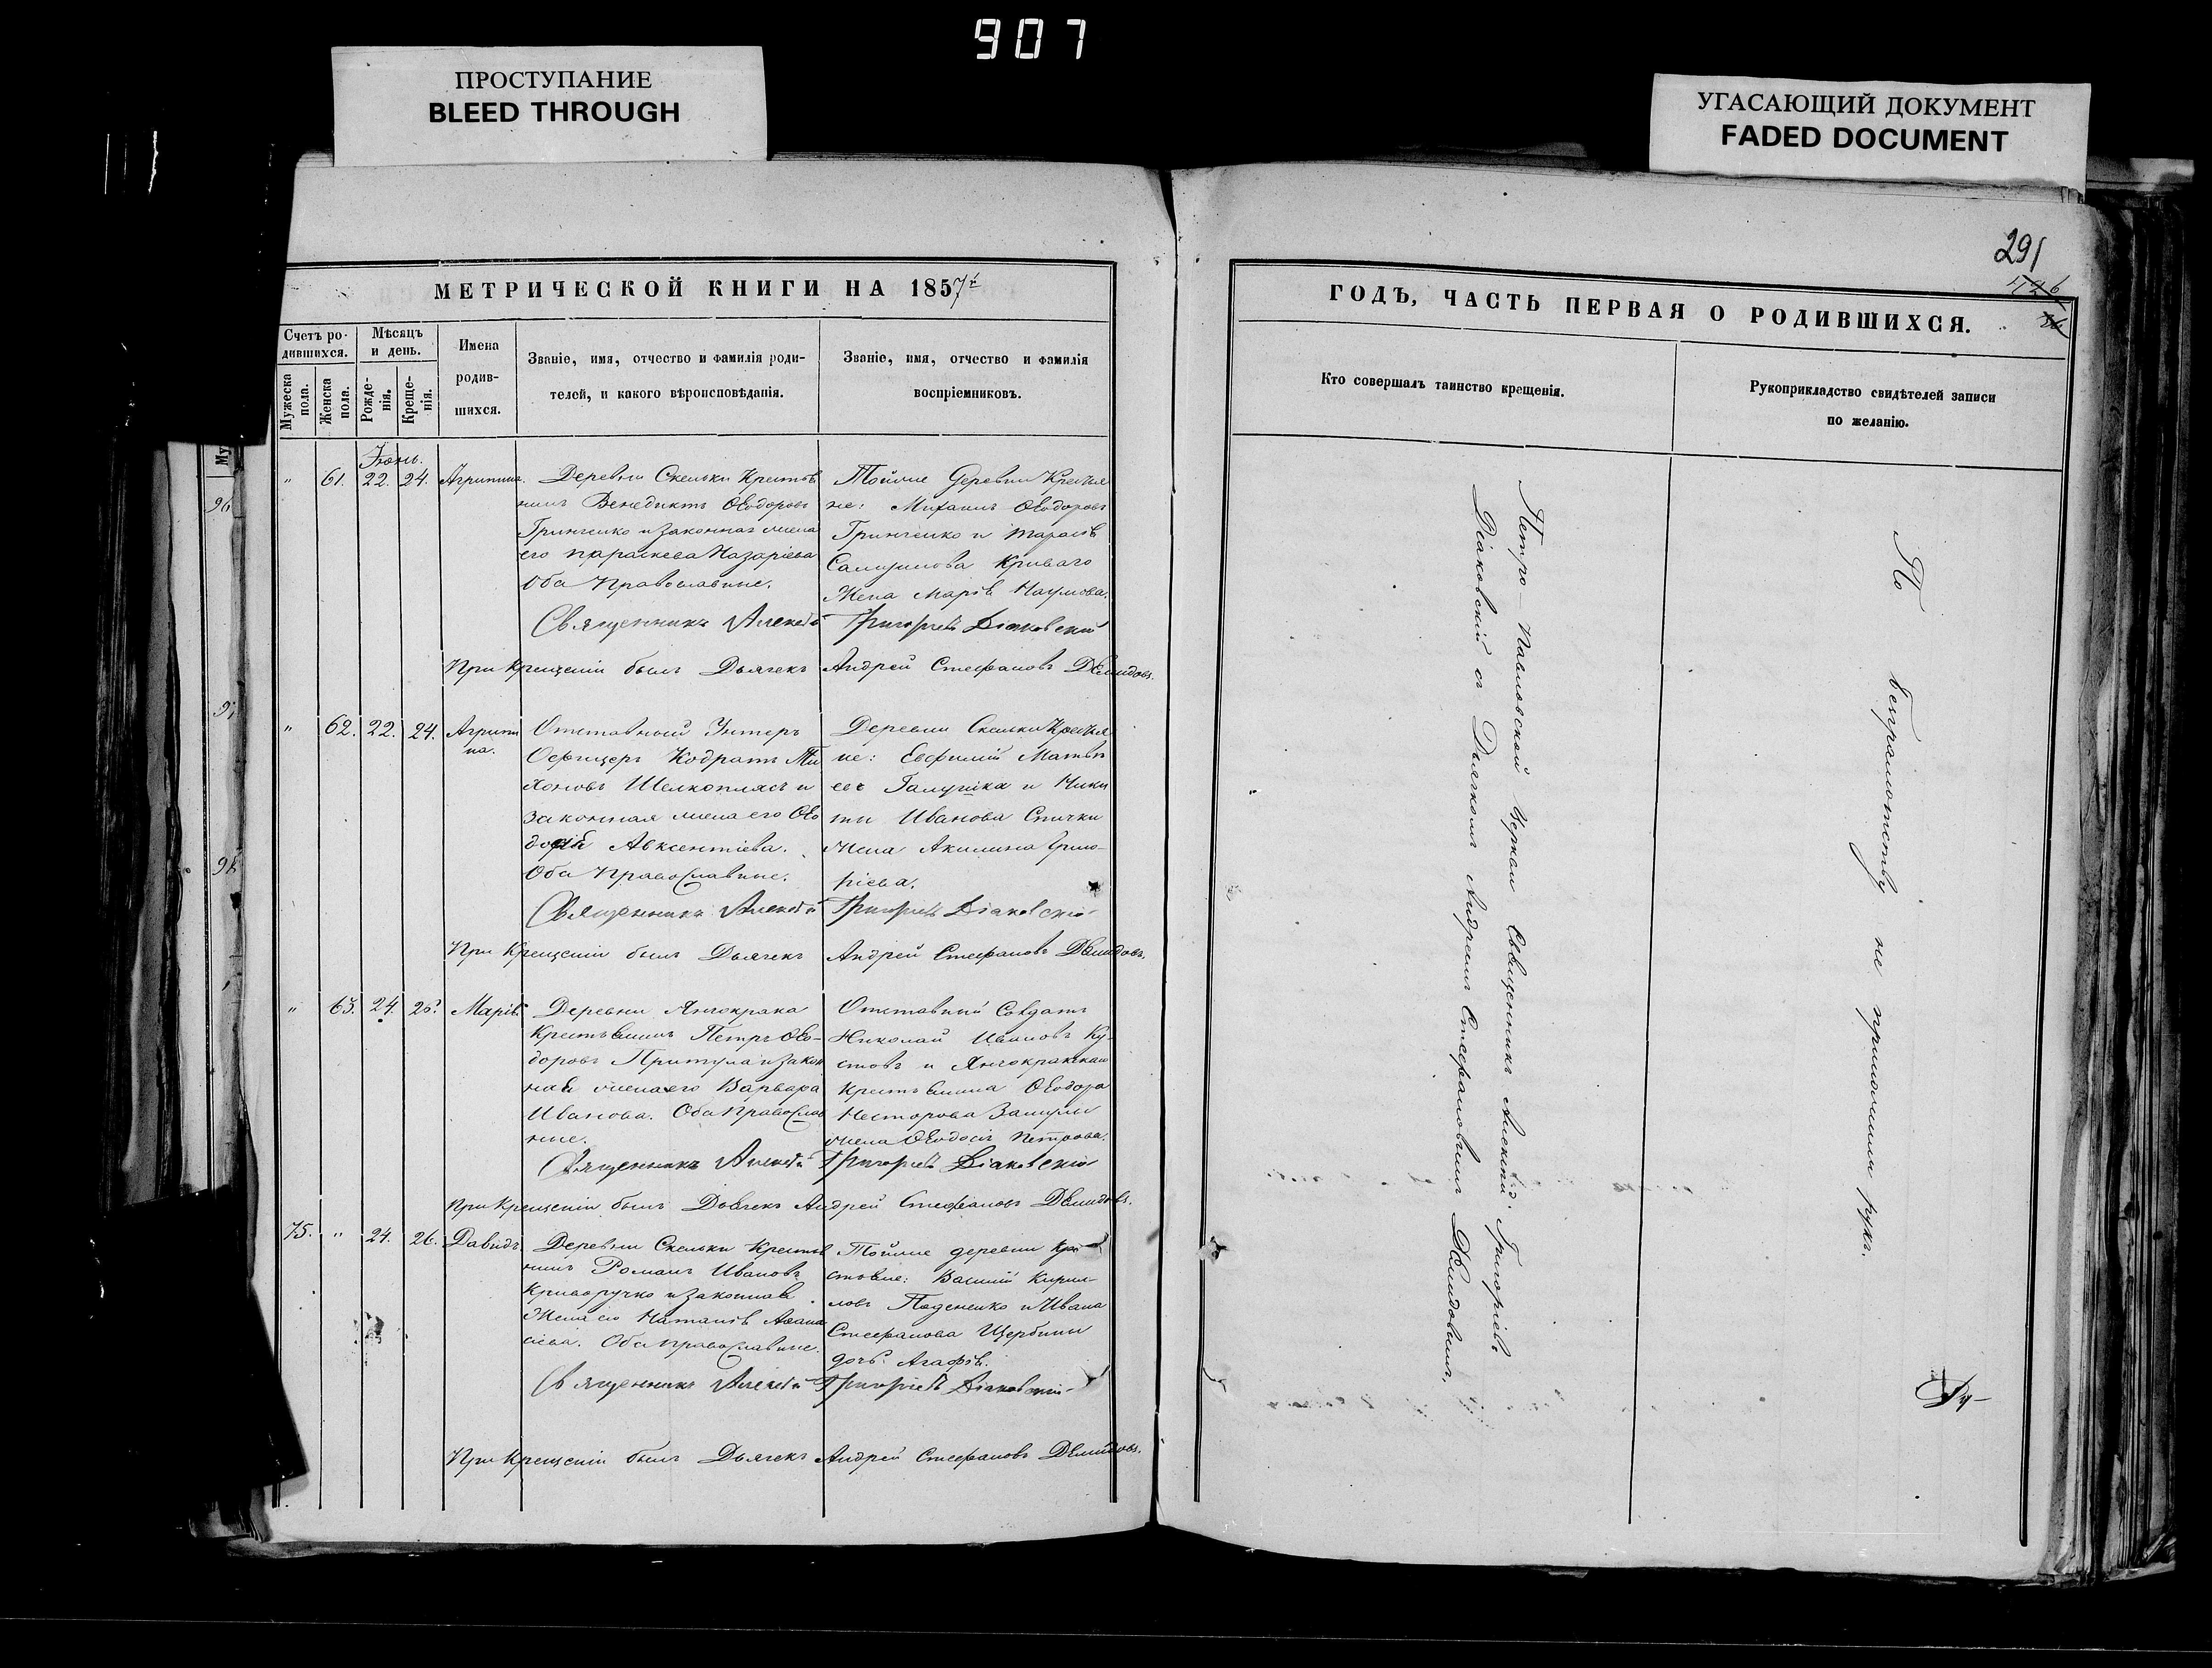 907
ПРОСТУПАНИЕ
BLEED THROUGH
УГАСАЮЩИЙ ДОКУМЕНТ
FADED DOCUMENT
МЕТРИЧЕСКОЙ КНИГИ НА 1857й
Счетъ ро-
дившихся.
Мѣсяцъ
и день.
Мужеска
пола.
Женска
пола.
Рожде-
нія.
Креще-
нія.
Имена
родив-
шихся.
Званіе, имя, отчество и фамилія роди-
телей, и какого вѣроисповѣданія.
Званіе, имя, отчество и фамилія
воспріемниковъ.
Му
96
97
98
Іюнь.
" 61. 22. 24. Агрипина.
Деревни Скельки Крестья
нинъ Венедиктъ Ѳеодоровъ
Гринченко и законная жена
его Параскева Назаріева
Оба Православные.
Тойже Деревни Крестья
не: Михаилъ Ѳеодоровъ
Гринченко и Тарасія
Криваго
Жена Марія Наумова.
Священникъ Алексій Григоріевъ Діаковскій
При Крещеніи былъ Дьячекъ Андрей Стефановъ Демидовъ.
" 62. 22. 24. Агрипи
на.
Отставной Унтеръ
Офицеръ Кодратъ Ти
хоновъ Шелкоплясъ и
законная жена его Ѳео
досія Авксентіева.
Оба Православные.
Деревни Скельки Крестья
не: Евфимій Матвѣ
евъ Галушка и Ники
ты Иванова Спички
Жена Акилина Григо-
ріева.
Священникъ Алексій Григоріевъ Діаковскій
При Крещеніи былъ Дьячекъ Андрей Стефановъ Демидовъ.
" 63. 24. 25. Марія.
Деревни Янчокрака
Крестьянинъ Петръ Ѳео-
доровъ Притула и закон
ная жена его Варвара
Иванова. Оба Православ
ные.
Отставный Солдатъ
Николай Ивановъ Ку-
стовъ и Янчокракскаго
Крестьянина Ѳеодора
Несторова
жена Ѳеодосія Петрова.
Священникъ Алексій Григоріевъ Діаковскій
При Крещеніи былъ Дьячекъ Андрей Стефановъ Демидовъ.
75. " 24. 26. Давидъ.
Деревни Скельки Крестья
нинъ Романъ Ивановъ
Криворучко и законная
Жена его Наталія Аѳана
сіева. Оба Православные.
Тойже деревни Кре-
стьяне: Василій Кирил-
ловъ и Ивана
Стефанова Щербины
дочь Агафія.
Священникъ Алексій Григоріевъ Діаковскій
При Крещеніи былъ Дьячекъ Андрей Стефановъ Демидовъ.
291
ГОДЪ, ЧАСТЬ ПЕРВАЯ О РОДИВШИХСЯ.
Кто совершалъ таинство крещенія.
Рукоприкладство свидѣтелей записи
по желанію.
Петро-Павловской Церкви Священникъ Алексій Григоріевъ
Діаковскій съ Дьячкомъ Андреемъ Стефановымъ Демидовымъ.
По безграмотству не приложили рукъ.
Ду-